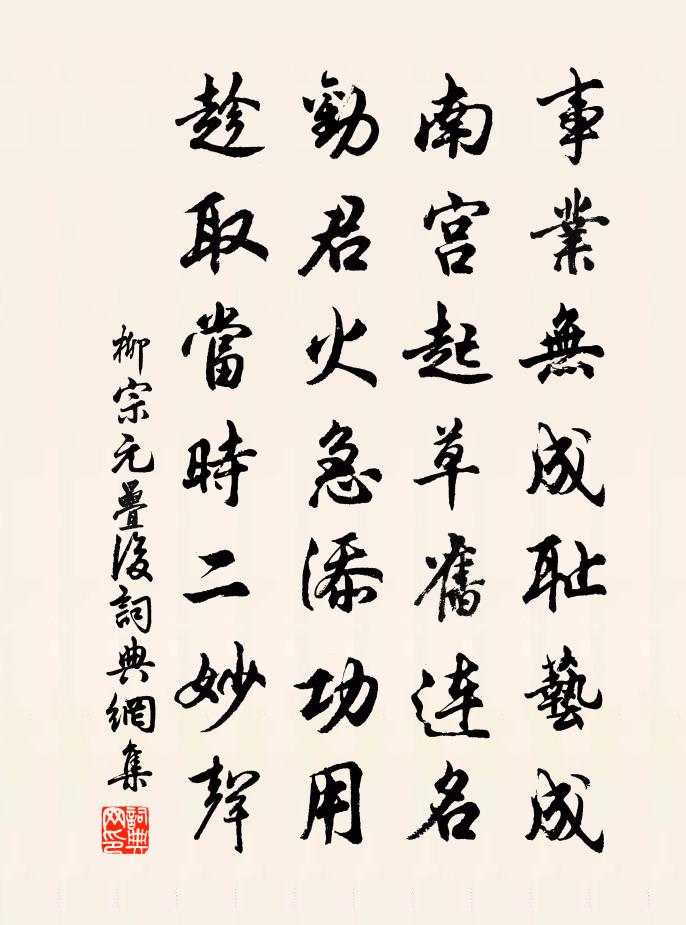 事業無成耻藝成
南宮起草舊連名
勸君火急添功用
趁取當時二妙聲
柳宗元疊後詞典網集
詞典網印